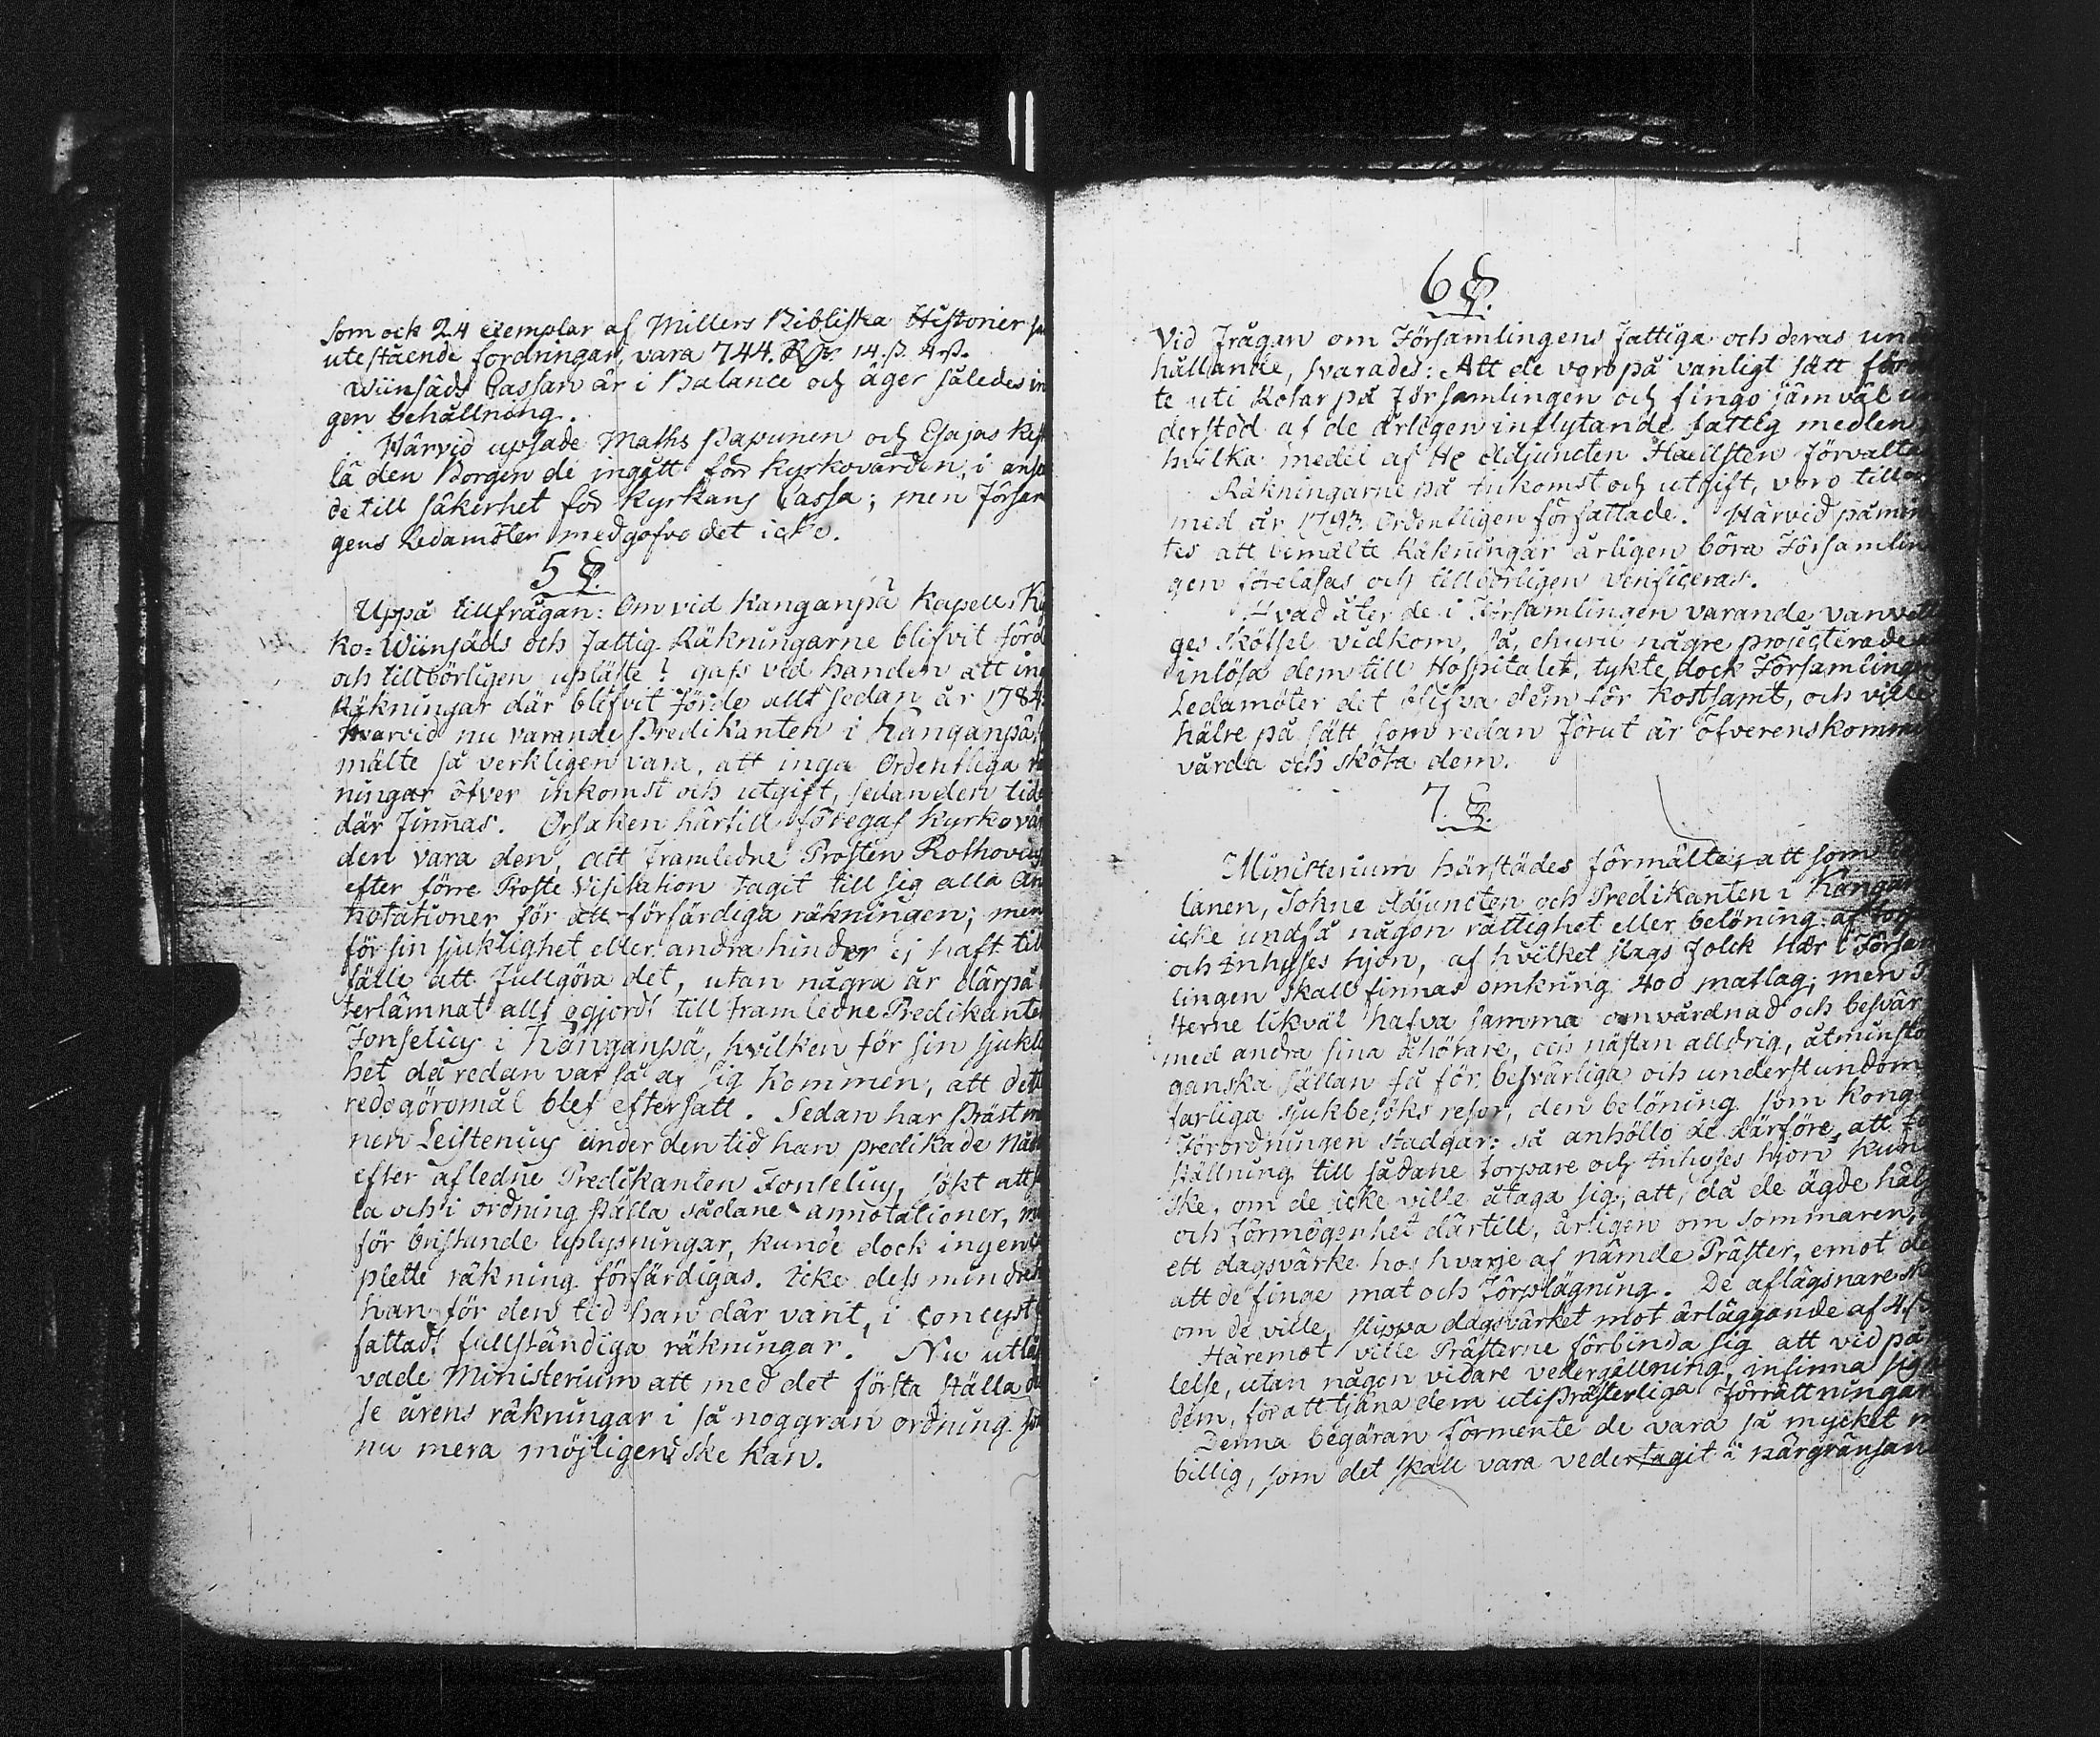 som ock 24 exemplar af Millers Bibliska Historier
utestående fordringar, vara 744. Rdr 14. ß. 4 rst.
Wiinsäds Cassan är i Balance och äger således in
gen behållning.
Härvid upsade Maths Papunen och Esajas
lä den Borgen de ingått för kyrkovärden, i
de till säkerhet for kyrkans Cassa; men Församl
gens Ledamöter medgofvo det icke.
5 §.
Uppå tillfrågan: Om vid Kanganpä Kapell, Ky
ko= Wiinsäds och Fattig Räkningarne blifvit förd
och tillbörligen upläste? gafs vid handen att ing
Räkningar där blifvit förde allt sedan år 1784.
Hvarvid nu varande Predikanten i Kanganpä,
mälte så verkligen vara, att inga Ordentliga
ningar öfver inkomst och utgift, sedan den tid
där finnas. Orsaken härtill föregaf kyrkovär
den vara den, att framledne Prosten Rothovius
efter förre Proste Visitation tagit till sig alla An
notationer för att förfärdiga räkningen; men
för sin sjuklighet eller andra hinder ej haft till
fälle att fullgöra det, utan några år därpå
terlämnat allt ogjordt till framledne Predikanten
Fonselius i Kånganpä, hvilken för sin sjukli
het då redan var så af sig kommen, att det
redogöromål blef eftersatt. Sedan har Prästm
nen Leistenius under den tid han predikade
efter afledne Predikanten Fonselius, sökt att
la och i ordning ställa sådane annotationer, m
för bristande uplysningar, kunde dock ingen
plette räkning förfärdigas. Icke dess mindre
han för den tid han där varit, i concept
fattadt fullständiga räkningar. Nu utlåf
vade Ministerium att med det första ställa
se årens räkningar i så noggran ordning som
nu mera möjligen ske kan.
6 §.
Vid frågan om Församlingens fattiga och deras und
hållande, svarades: Att de voro på vanligt sätt
te uti Rotar på församlingen och fingo jämväl un
derstöd af de årligen inflytande fattig medlen,
hvilka medel af He Adjuncten Haellsten förvalta
Räkningarne på inkomst och utgift, voro till
med år 1793. ordentligen författade. Härvid påmin
tes att bemälte Räkningar årligen böra Församlin
gen föreläsas och tillbörligen verificeras.
Hvad åter de i Församlingen varande vanvet
ges skötsel vidkom, så, ehuru någre projecterade
inlösa dem till Hospitalet, tykte dock Församlingens
Ledamöter det blifva dem för kostsamt, och ville
hälre på sätt som redan förut är öfverenskommit
vårda och sköta dem.
7. §.
Ministerium härstädes förmälte, att som
lanen, Sokne Adjuncten och Predikanten i Kangan
icke undfå någon rättighet eller belöning af torp
och Inhyses hjon, af hvilket slags folck här i Försam
lingen skall finnas omkring 400 matlag; men
sterne likväl hafva samma omvårdnad och besvär
med andra sina åhörare, och nästan alldrig, åtminsto
ganska sällan få för besvärliga och understundom
farliga sjukbesöks resor, den belöning som Kongl
Förordningen stadgar: så anhöllo de därföre, att
ställning till sådane torpare och Inhyses hjon kun
ske, om de icke ville åtaga sig, att, då de ägde häls
och förmögenhet därtill, årligen om sommaren,
ett dagsvärke hos hvarje af nämde Präster, emot
att de finge mat och förplägning. De aflägsnare
om de ville, slippa dagsvärket mot ärläggande af 4.
Häremot ville Prästerne förbinda sig att vid på
lelse, utan någon vidare vedergällning, infinna sig
dem, för att tjäna dem uti Prästerliga förrättningar
Denna begäran förmente de vara så mycket
billig, som det skall vara vedertagit i närgränsan